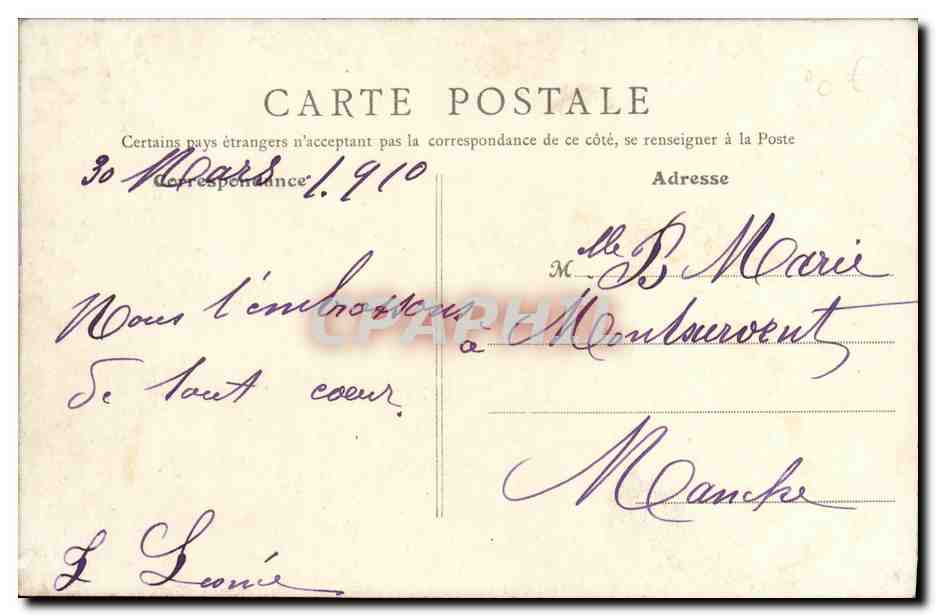 CARTE POSTALE
Certains pays étrangers n'acceptant pas la correspondance de ce côté, se renseigner à la Poste
30 Mars 1.910
Correspondance
Nous t'embrassons
de tout cœur.
Léonie
Adresse
M lle B Marie
à Montsurvent
Manche
CPAPHIL